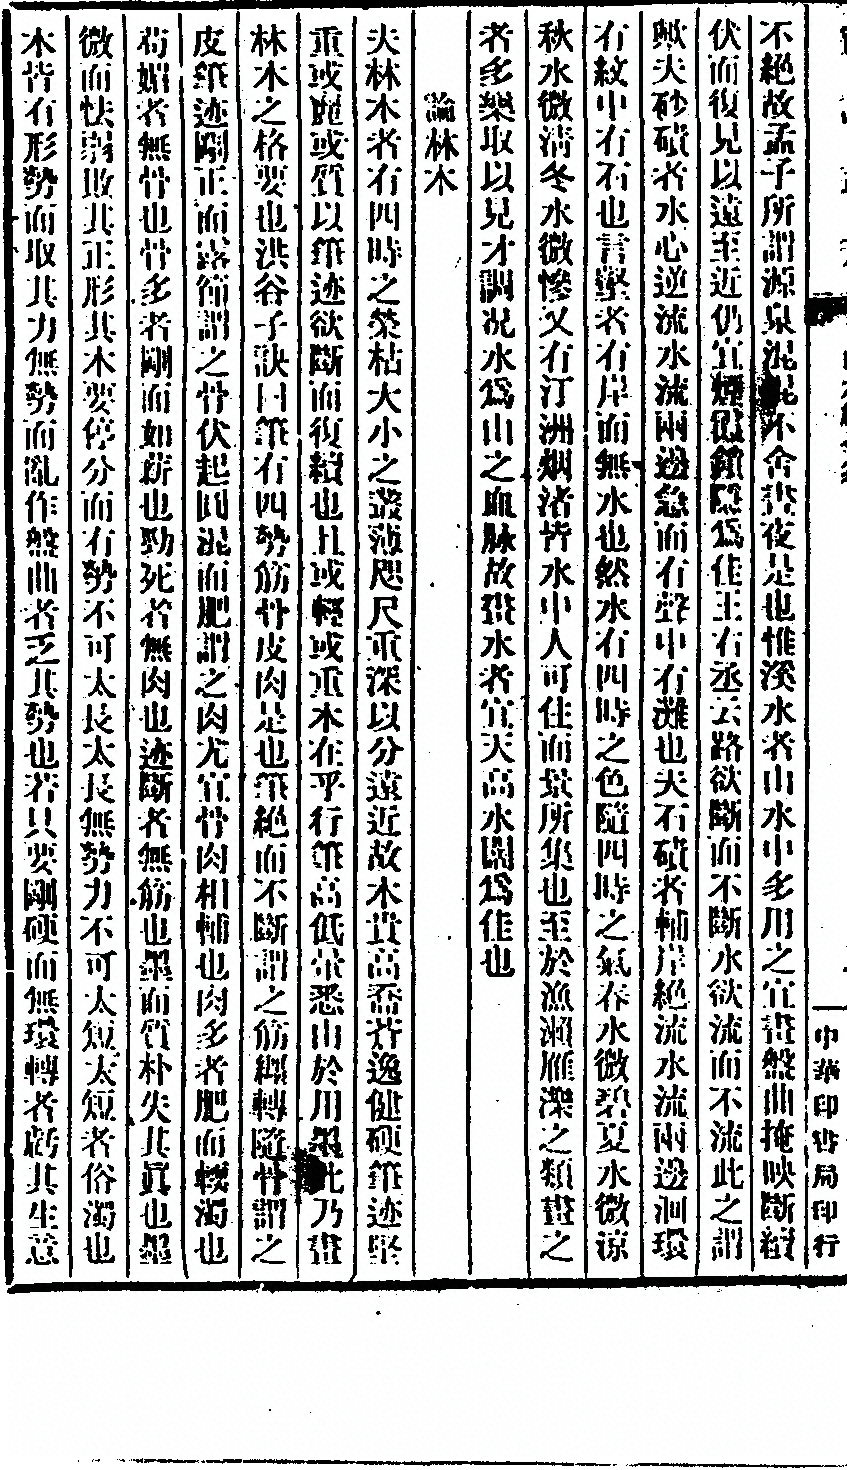 不絕故孟子所謂源泉混混不舍晝夜是也惟溪水者山水中多用之宜畫盤曲掩映斷續
伏而復見以遠至近仍宜煙霞鎖隱為佳王右丞云路欲斷而不斷水欲流而不流此之謂
歟夫砂磧者水心逆流水流兩邊急而有聲中有灘也夫石磧者輔岸絕流水流兩邊洄環
有紋中有石也言壑者有岸而無水也然水有四時之色隨四時之氣春水微碧夏水微涼
秋水微清冬水微慘又有汀洲烟渚皆水中人可住而景所集也至於漁瀨雁濼之類畫之
者多樂取以見才調況水為山之血脉故畫水者宜天高水闊為佳也
論林木
夫林木者有四時之榮枯大小之叢薄咫尺重深以分遠近故木貴高喬蒼逸健硬筆迹堅
重或麗或質以筆迹欲斷而復續也且或輕或重本在乎行筆高低暈悉由於用墨此乃畫
林木之格要也洪谷子訣曰筆有四勢筋骨皮肉是也筆絕而不斷謂之筋纏轉隨骨謂之
皮筆迹剛正而露節謂之骨伏起圓混而肥謂之肉尤宜骨肉相輔也肉多者肥而軟濁也
苟媚者無骨也骨多者剛而如薪也勁死者無肉也迹斷者無筋也墨而質朴失其真也墨
微而怯弱敗其正形其木要停分而有勢不可太長太長無勢力不可太短太短者俗濁也
木皆有形勢而取其力無勢而亂作盤曲者乏其勢也若只要剛硬而無環轉者虧其生意
中華印書局印行